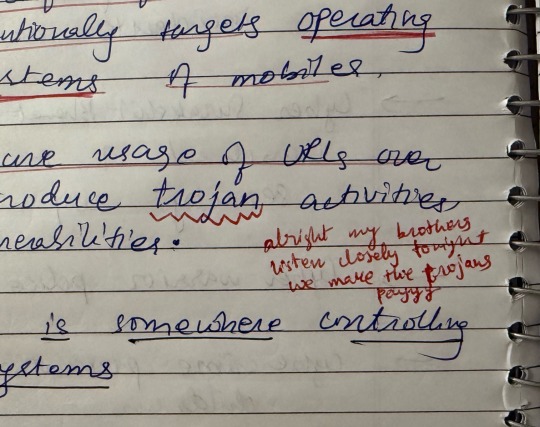 utionally targets operating
stems of mobiles.
use usage of URLs over
roduce trojan activities
nerabilities.
alright my brothers
listen closely tonight
we make the trojans
payyy
is somewhere controlling
ystems